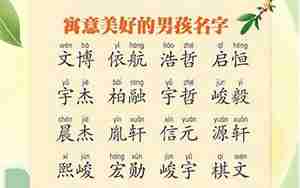 寓意美好的男孩名字
wén bó yī háng hào zhé qǐ héng
文博 依航 浩哲 启恒
yǔ jié bǎi róng yǔ zhé jùn yì
宇杰 柏融 宇哲 峻毅
chén jié yìn xuān xìn yuán yuán xuān
晨杰 胤轩 信元 源轩
xī jùn hóng xūn jùn yǔ qí wén
熙峻 宏勋 峻宇 棋文